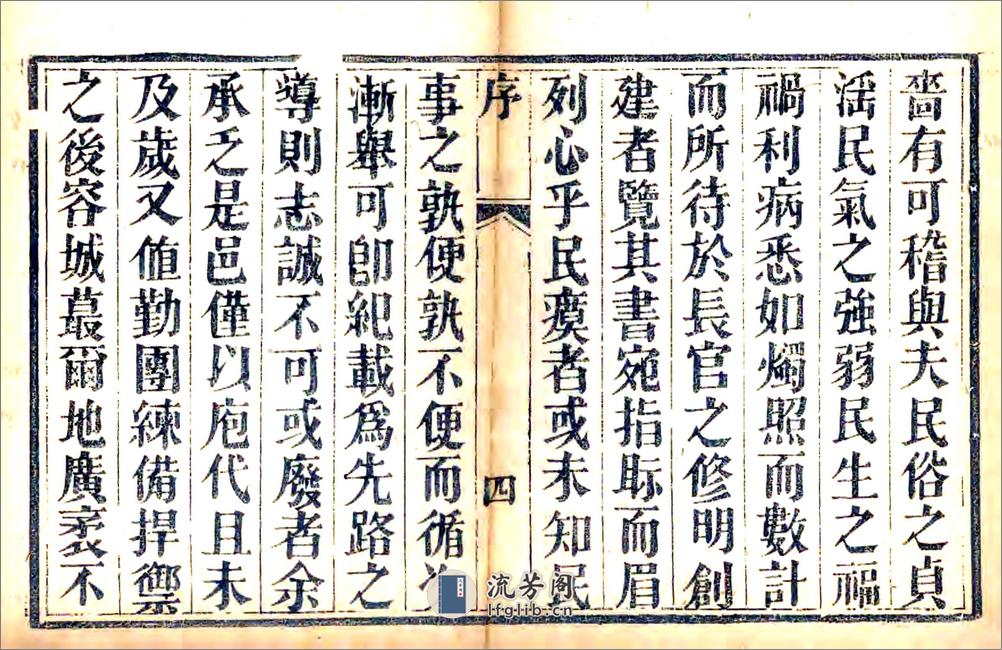 嗇有可稽與夫民俗之貞
淫民氣之強弱民生之福
禍利病悉如燭照而數計
而所待於長官之修明創
建者覽其書宛指眎而眉
列心乎民瘼者或未知民
序
四
事之孰便孰不便而循次
漸舉可卽紀載爲先路之
導則志誠不可或廢者余
承乏是邑僅以庖代且未
及歲又値勤團練備捍禦
之後容城蕞爾地廣袤不
流芳阁
lfglib.cn